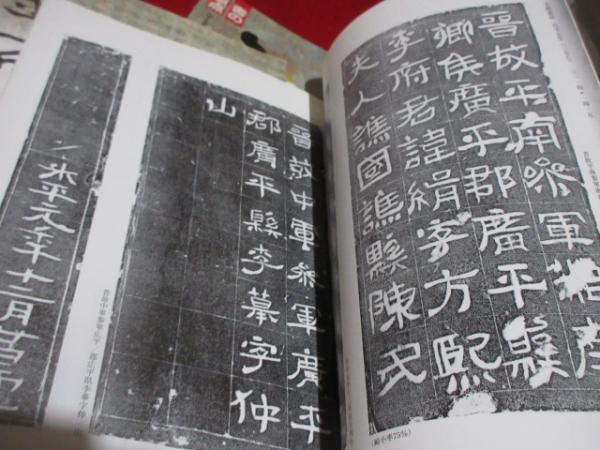 晉故平南參軍湘南
鄉侯廣平郡廣平縣
李府君諱緝字方熙
夫人譙國譙縣陳氏
(縮小率75%)
晉故中軍參軍廣平
郡廣平縣李摹字仲
山
升平元年十二月